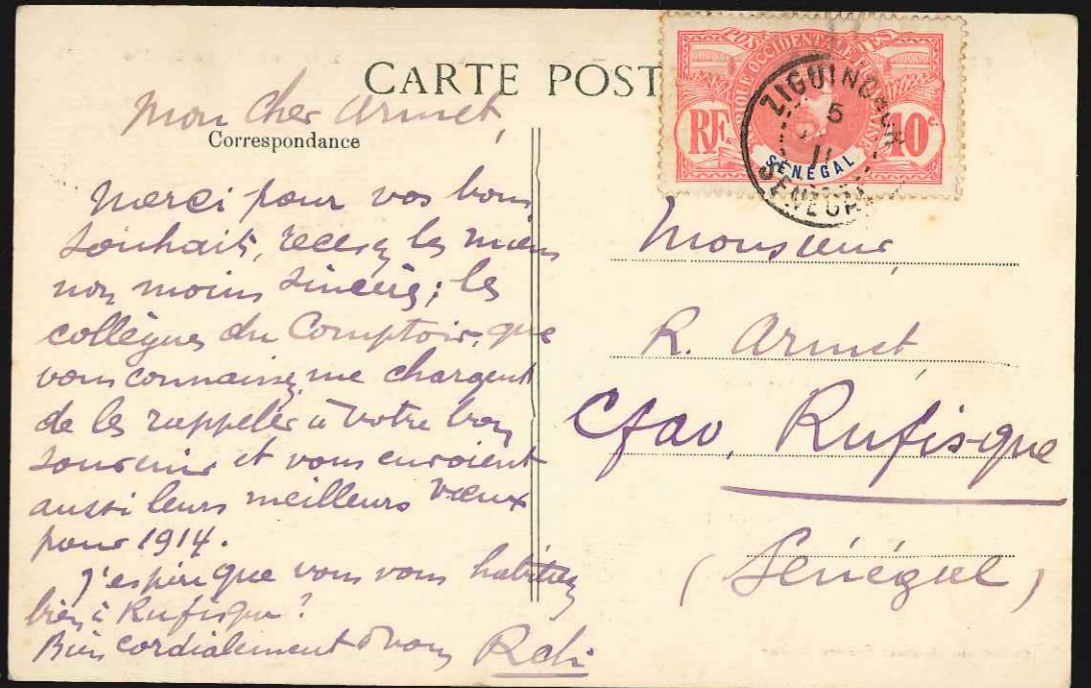 CARTE POST
Mon cher Armet,
Correspondance
Merci pour vos bons
souhaits, recevez les miens
non moins sincères; les
collègues du Comptoir, que
vous connaissez, me chargent
de les rappeler à votre bon
souvenir et vous envoient
aussi leurs meilleurs vœux
pour 1914.
J'espère que vous vous habituez
bien à Rufisque?
Bien cordialement à vous
POSTES
AFRIQUE OCCIDENTALE FRANÇAISE
RF 10c
SÉNÉGAL
ZIGUINCHOR
5
11
SENEGAL
Monsieur,
R. Armet,
Cfao, Rufisque
(Sénégal)